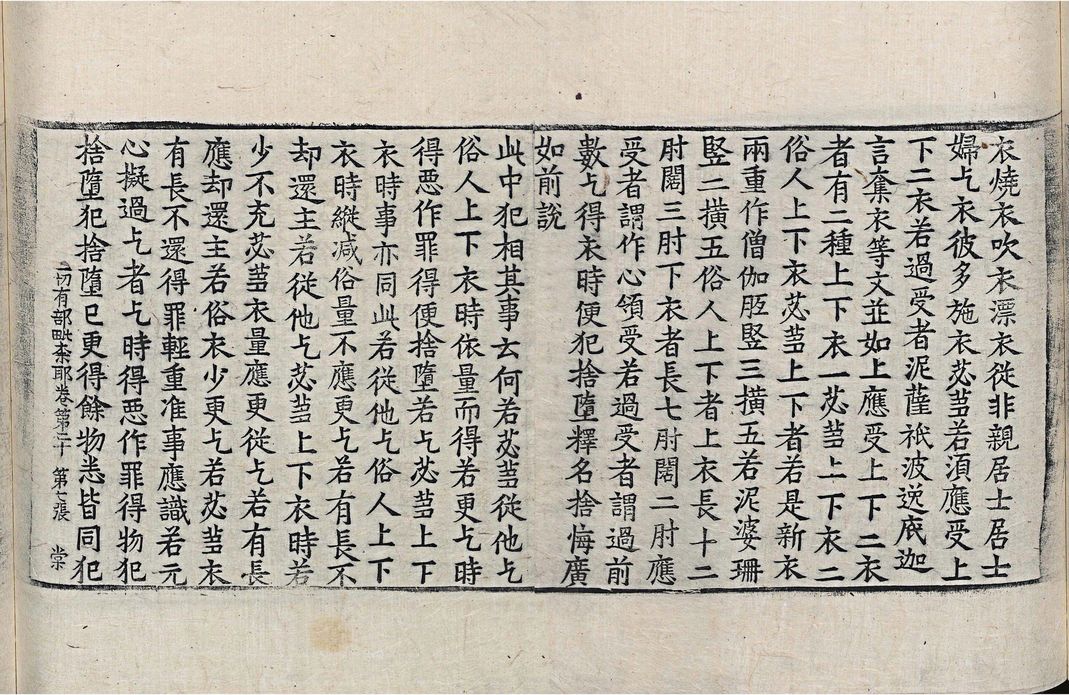 衣燒衣吹衣漂衣從非親居士居士
婦乞衣彼多施衣苾蒭若須應受上
下二衣若過受者泥薩祇波逸底迦
言奪衣等文並如上應受上下二衣
者有二種上下衣一苾蒭上下衣二
俗人上下衣苾蒭上下者若是新衣
兩重作僧伽胝竪三橫五若泥婆珊
竪二橫五俗人上下者上衣長十二
肘闊三肘下衣者長七肘闊二肘應
受者謂作心領受若過受者謂過前
數乞得衣時便犯捨墮釋名捨悔廣
如前說
此中犯相其事云何若苾蒭從他乞
俗人上下衣時依量而得若更乞時
得惡作罪得便捨墮若乞苾蒭上下
衣時事亦同此若從他乞俗人上下
衣時縱減俗量不應更乞若有長不
却還主若從他乞苾蒭上下衣時若
少不充苾蒭衣量應更從乞若有長
應却還主若俗衣少更乞若苾蒭衣
有長不還得罪輕重准事應識若元
心擬過乞者乞時得惡作罪得物犯
捨墮犯捨墮已更得餘物悉皆同犯
一切有部毗奈耶卷第二十 第七張 棠